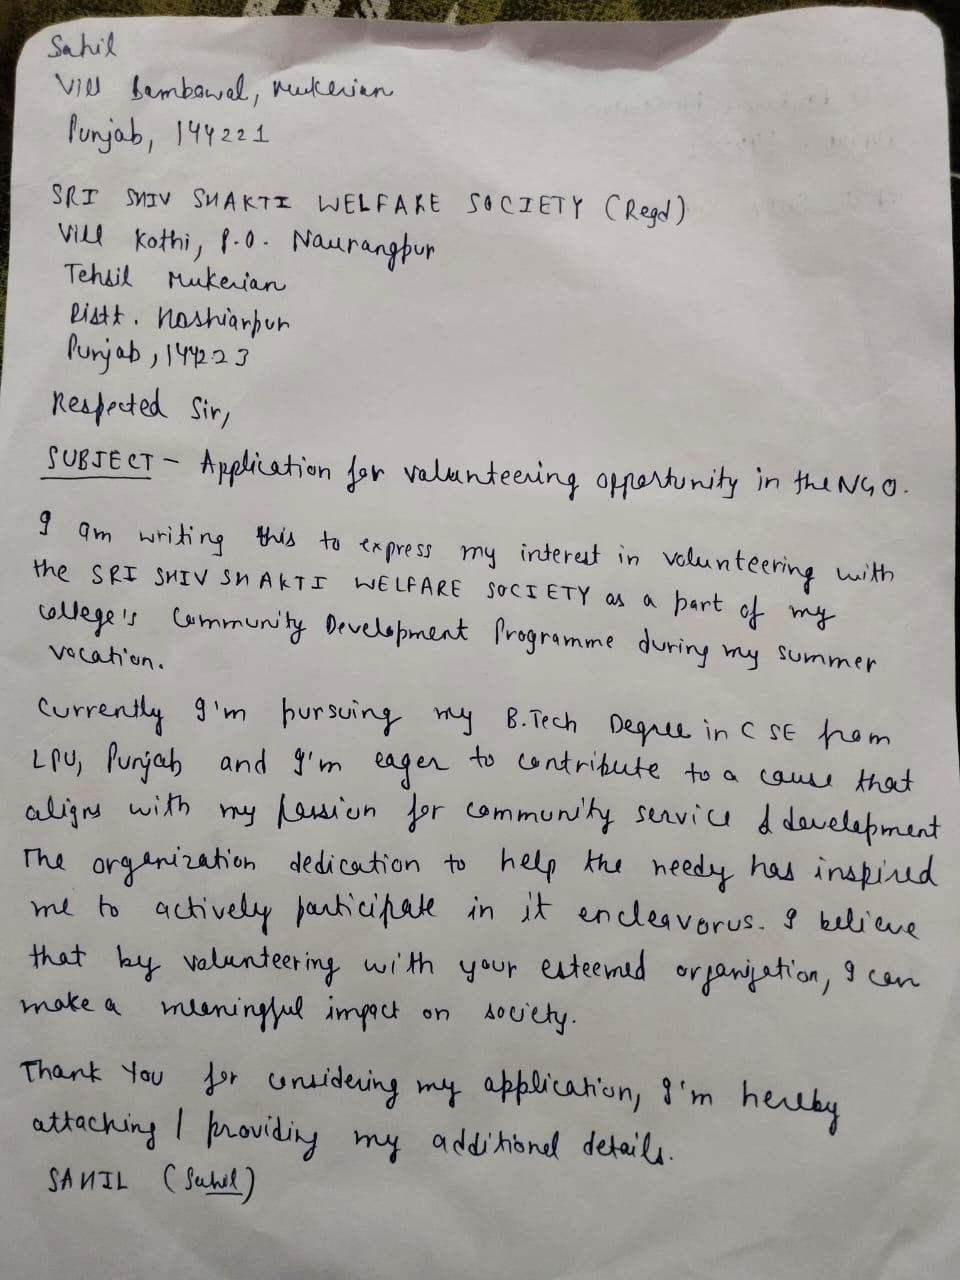 Sahil
Vill Bambowal, Mukerian
Punjab, 144221
SRI SHIV SHAKTI WELFARE SOCIETY (Regd)
Vill Kothi, P.O. Naurangpur
Tehsil Mukerian
Distt. Hoshiarpur
Punjab, 144223
Respected Sir,
SUBJECT - Application for volunteering opportunity in the NGO.
I am writing this to express my interest in volunteering with
the SRI SHIV SHAKTI WELFARE SOCIETY as a part of my
college's Community Development Programme during my summer
vacation.
Currently I'm pursuing my B.Tech Degree in CSE from
LPU, Punjab and I'm eager to contribute to a cause that
aligns with my passion for community service & development
The organization dedication to help the needy has inspired
me to actively participate in it endeavorus. I believe
that by volunteering with your esteemed organization, I can
make a meaningful impact on society.
Thank You for considering my application, I'm hereby
attaching / providing my additional details.
SAHIL (Sahil)